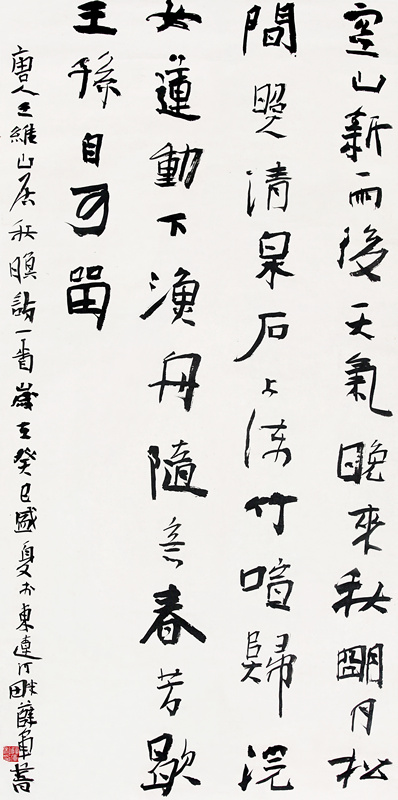 空山新雨後天氣晚來秋朙月松
間照清泉石上流竹喧歸浣
女蓮動下漁舟隨意春芳歇
王孫自可留
唐人王維山居秋暝詩一首歲在癸巳盛夏於東連河畔薛軍書